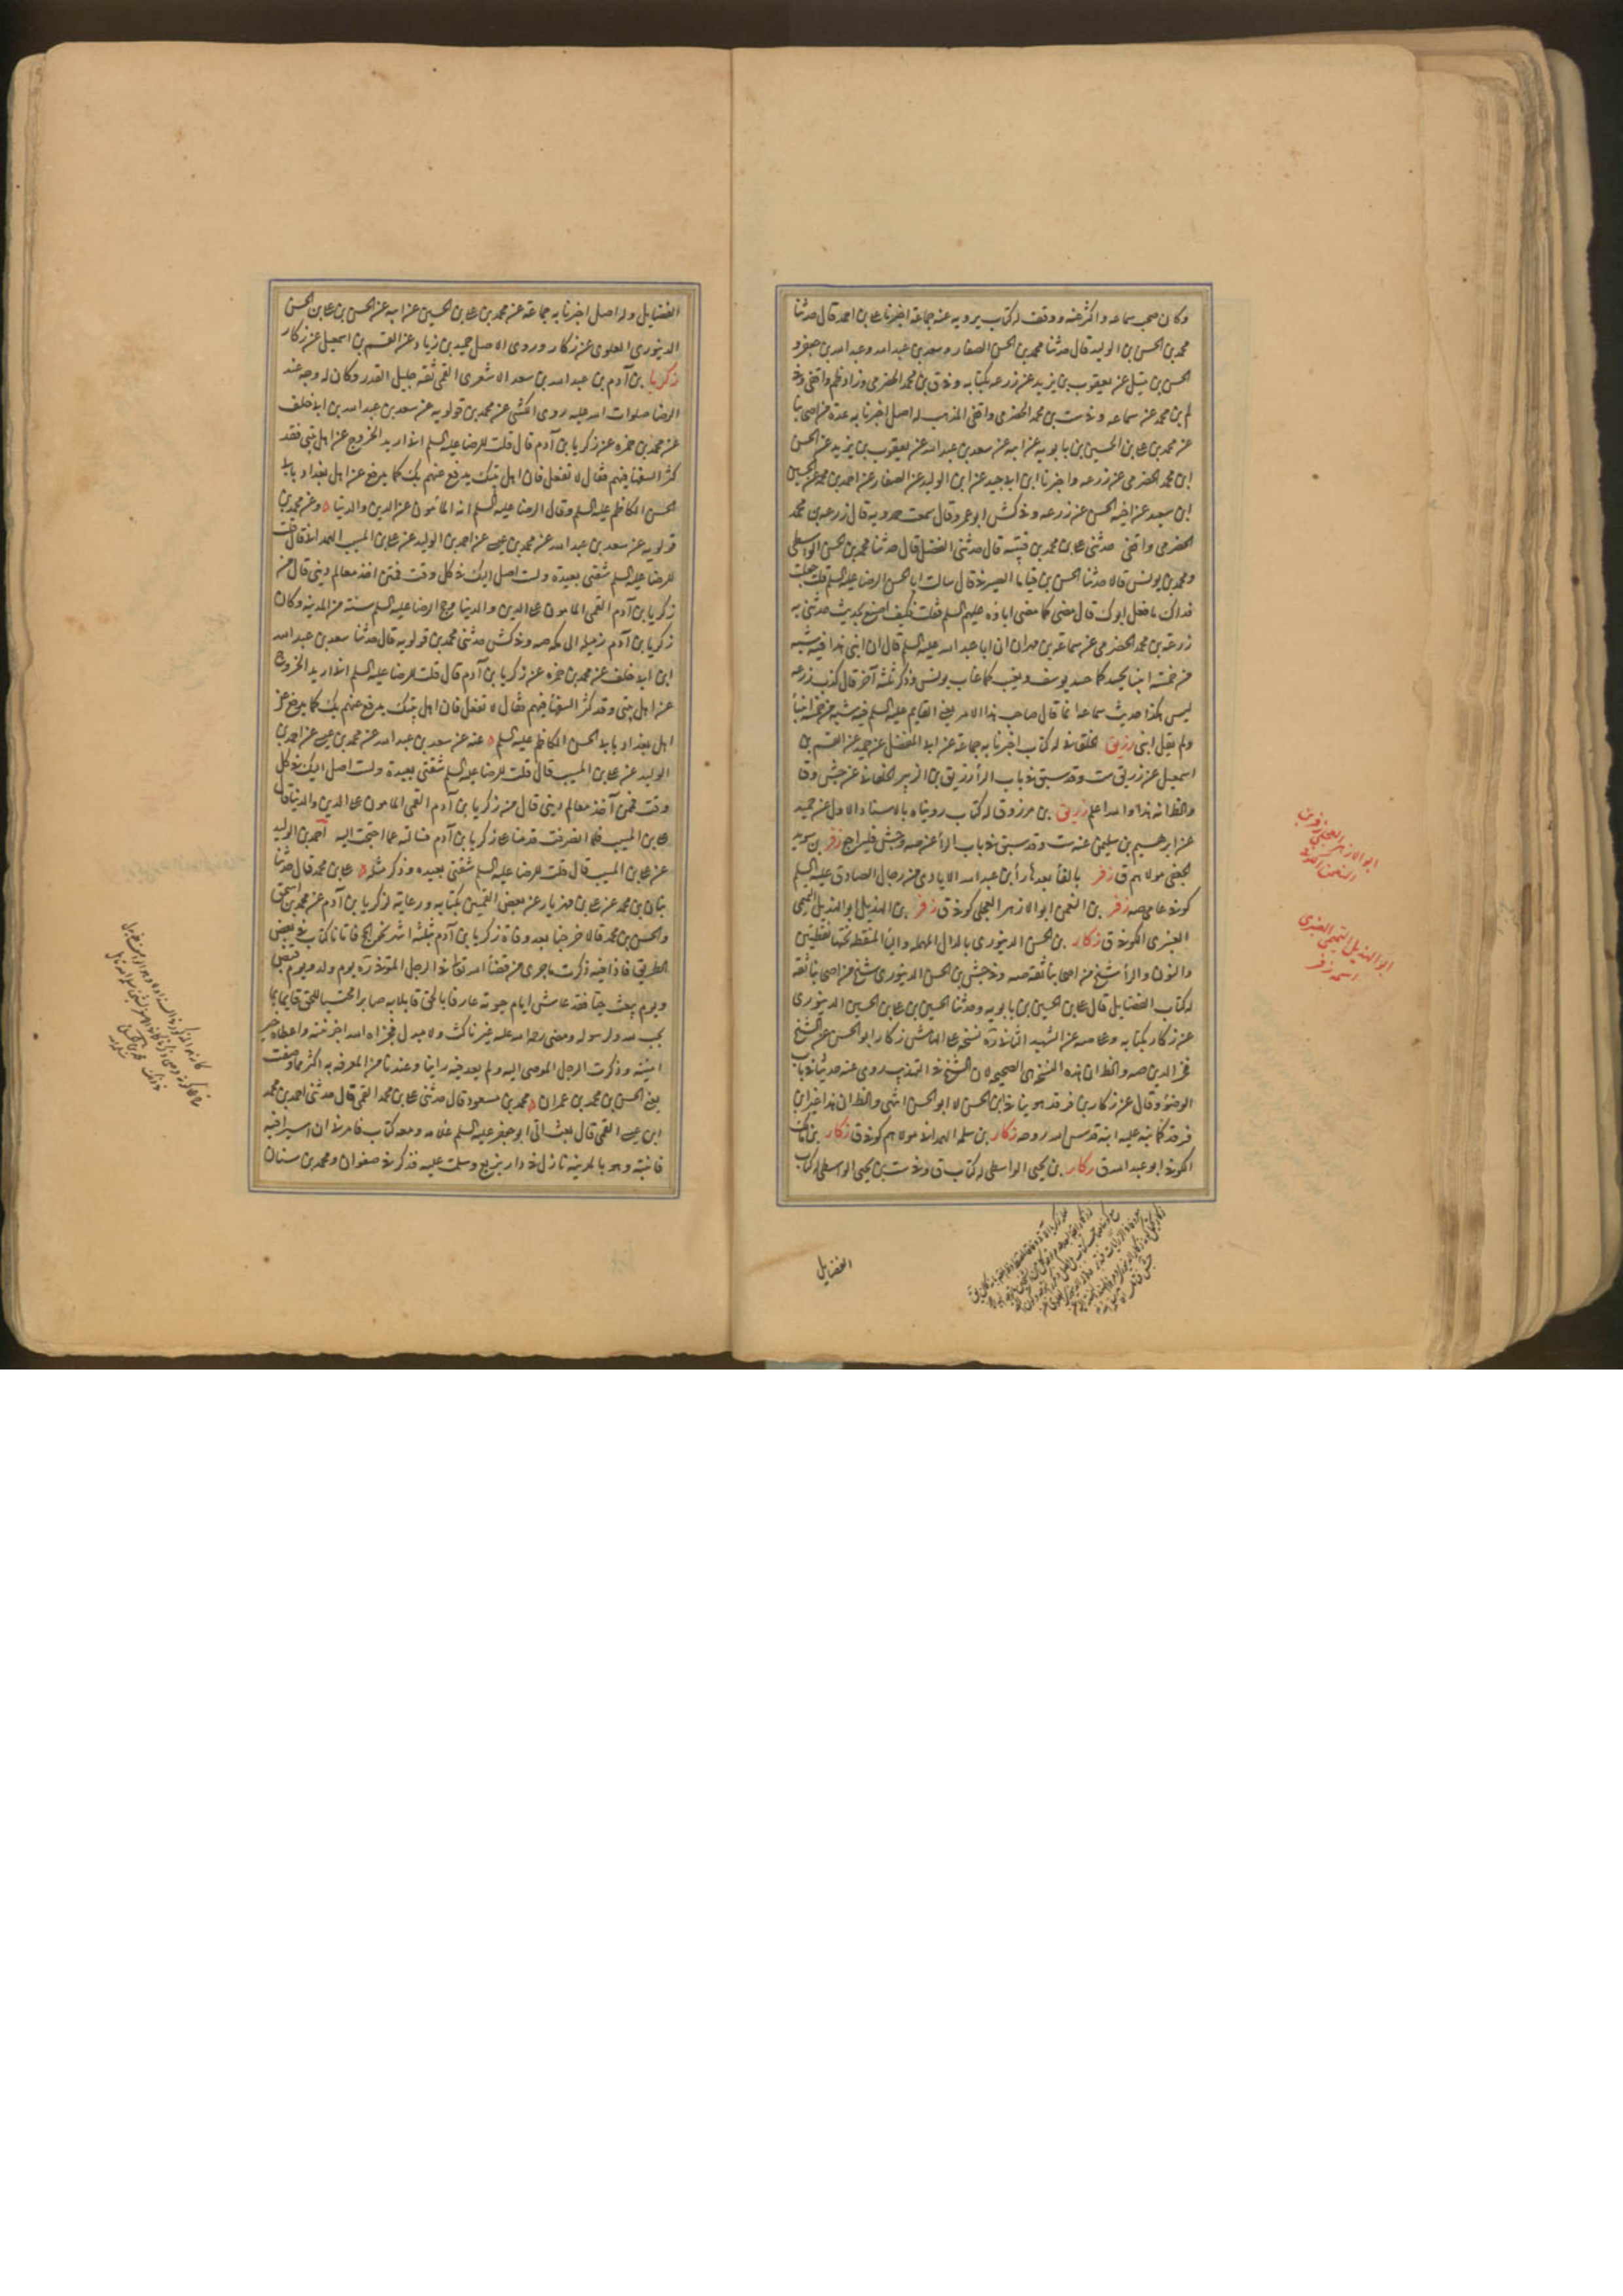 وكان صحب سماعه واكثر عنه ووقف له كتاب يرويه عنه جماعة اخبرنا على بن احمد قال حدثنا
محمد بن الحسن بن الوليد قال حدثنا محمد بن الحسن الصفار وسعد بن عبد الله وعبد الله بن جعفر و
الحسن بن متيل عن يعقوب بن يزيد عن زرعه بكتابه وفى ق بن محمد الحضرمى وزاد ظم واقفى وفى
لم بن محمد عن سماعه وفى ست بن محمد الحضرمى واقفى المذهب له اصل اخبرنا به عدة من اصحابنا
عن محمد بن على بن الحسين بن بابويه عن ابيه عن سعد بن عبد الله عن يعقوب بن يزيد عن الحسن
ابن محمد الحضرمى عن زرعه واخبرنا ابن ابى جيد عن ابن الوليد عن الصفار عن احمد بن محمد عن الحسين
ابن سعيد عن اخيه الحسن عن زرعه وفى كش ابو عمرو قال سمعت حمدويه قال زرعه بن محمد
الحضرمى واقفى حدثنى على بن محمد بن قتيبه قال حدثنى الفضل قال حدثنا محمد بن الحسن الواسطى
ومحمد بن يونس قالا حدثنا الحسن بن قياما الصيرفى قال سالت ابا الحسن الرضا عليه السلم قلت جعلت
فداك ما فعل ابوك قال مضى كما مضى اباؤه عليهم السلم قلت فكيف اصنع بحديث حدثنى به
زرعة بن محمد الحضرمى عن سماعة بن مهران ان ابا عبد الله عليه السلم قال ان ابنى هذا فيه شبه
من خمسة انبيا يحسد كما حسد يوسف ويغيب كما غاب يونس وذكر ثلثة آخر قال كذب زرعه
ليس هكذا حديث سماعه انما قال صاحب هذا الامر يعنى القايم عليه السلم فيه شبه من خمسة انبيا
ولم يقل ابنى زريق الخلقانى له كتاب اخبرنا به جماعة عن ابى المفضل عن حميد عن القسم بن
اسمعيل عن زريق ست وقد سبق فى باب الرا رزيق بن الزبير الخلقانى عن جش وق
والظ انه هذا والله اعلم زريق بن مرزوق له كتاب رويناه بالاسناد الاول عن حميد
عن ابرهيم بن سليمن عنه ست وقد سبق فى باب الرا عن صه وجش فليراجع زفر بن سويد
الجعفى مولاهم ق زفر بالفا بعدها را بن عبد الله الايادى من رجال الصادق عليه السلم
كوفى عامى صه زفر بن النعمن ابو الازهر العجلى كوفى ق زفر بن الهذيل ابو الهذيل التميمى
العنبرى الكوفى ق زكار بن الحسن الدينورى بالدال المهمله واليا المنقطة تحتها نقطتين
والنون والرا شيخ من اصحابنا ثقة صه وفى جش بن الحسن الدينورى شيخ من اصحابنا ثقه
له كتاب الفضايل قال على بن الحسين بن بابويه وحدثنا الحسين بن على بن الحسين الدينورى
عن زكار بكتابه وعلى صه عن الشهيد الثانى
فخر الدين صه والظ ان هذه النسخه هى الصحيحه لان الشيخ فى التهذيب روى عنه حديثا فى باب
الوضوء وقال عن زكار بن فرقد
زكار بن سلمه الهمدانى مولاهم كوفى ق زكار بن مالك
الكوفى ابو عبد الله ق زكار بن يحيى الواسطى له كتاب ق وفى ست بن يحيى الواسطى له كتاب
الفضايل
ابو الازهر العجلى زفر بن
النعمن الكوفى
ابو الهذيل التميمى العنبرى
اسمه زفر
الفضايل وله اصل اخبرنا به جماعة عن محمد بن على بن الحسين عن ابيه عن الحسن بن على بن الحسن
الدينورى العلوى عن زكار وروى الاصل حميد بن زياد عن القسم بن اسمعيل عن زكار
زكريا بن آدم بن عبد الله بن سعد الاشعرى القمى ثقه جليل القدر وكان له وجه عند
الرضا صلوات الله عليه روى الكشى عن محمد بن قولويه عن سعد بن عبد الله بن ابى خلف
عن محمد بن حمزه عن زكريا بن آدم قال قلت للرضا عليه السلم انى اريد الخروج عن اهل بيتى فقد
كثر السفها فيهم فقال لا تفعل فان اهل بيتك يدفع عنهم بك كما يدفع عن اهل بغداد بابى
الحسن الكاظم عليه السلم وقال الرضا عليه السلم انه المأمون على الدين والدنيا وعن محمد بن
قولويه عن سعد بن عبد الله عن محمد بن عيسى عن احمد بن الوليد عن على بن المسيب الهمدانى قال قلت
للرضا عليه السلم شقتى بعيدة ولست اصل اليك فى كل وقت فممن اخذ معالم دينى قال من
زكريا بن آدم القمى المامون على الدين والدنيا وحج الرضا عليه السلم سنة من المدينه وكان
زكريا بن آدم زميله الى مكه صه وفى كش حدثنى محمد بن قولويه قال حدثنا سعد بن عبد الله
ابن ابى خلف عن محمد بن حمزه عن زكريا بن آدم قال قلت للرضا عليه السلم انى اريد الخروج
عن اهل بيتى وقد كثر السفها فيهم فقال لا تفعل فان اهل بيتك يدفع عنهم بك كما يدفع عن
اهل بغداد بابى الحسن الكاظم عليه السلم عنه عن سعد بن عبد الله عن محمد بن عيسى عن احمد بن
الوليد عن على بن المسيب قال قلت للرضا عليه السلم شقتى بعيدة ولست اصل اليك فى كل
وقت فممن آخذ معالم دينى قال من زكريا بن آدم القمى المامون على الدين والدنيا قال
على بن المسيب فلما انصرفت قدمنا على زكريا بن آدم فسالته عما احتجت اليه احمد بن الوليد
عن على بن المسيب قال قلت للرضا عليه السلم شقتى بعيده وذكر مثله على بن محمد قال حدثنا
بنان بن محمد عن على بن مهزيار عن بعض القميين بكتابه ورعايته لزكريا بن آدم عن محمد بن اسحق
والحسن بن محمد قالا خرجنا بعد وفاة زكريا بن آدم بثلثة اشهر نحو الحج فاتانا كتابه فى بعض
الطريق فاذا فيه ذكرت ما جرى من قضا الله تعالى فى الرجل المتوفى ره يوم ولد ويوم قبض
ويوم يبعث حيا فقد عاش ايام حيوته عارفا بالحق قايلا به صابرا محتسبا للحق قايما بما
يحب لله ولرسوله ومضى رحمة الله عليه غير ناكث ولا مبدل فجزاه الله اجر نيته واعطاه خير
امنيته وذكرت الرجل الموصى اليه ولم يعد فيه راينا وعندنا من المعرفه به اكثر مما وصفت
يعنى الحسن بن محمد بن عمران محمد بن مسعود قال حدثنى على بن محمد القمى قال حدثنى احمد بن محمد
ابن عيسى القمى قال بعث الى ابو جعفر عليه السلم غلامه ومعه كتاب فامرنى ان اسير اليه
فاتيته وهو بالمدينه نازل فى دار بزيع وسلمت عليه فذكر فى صفوان ومحمد بن سنان